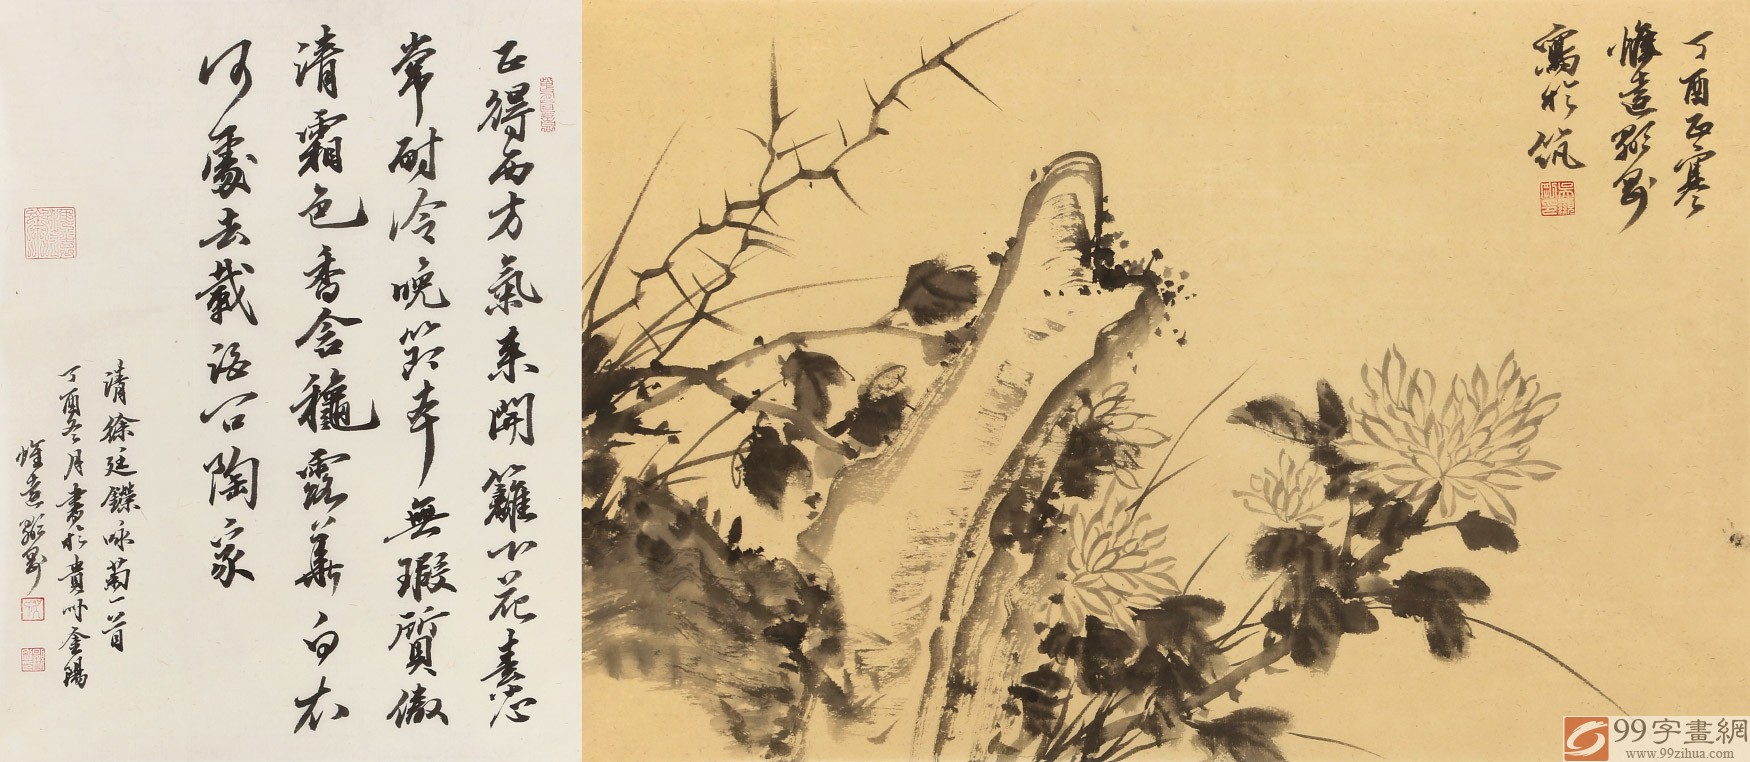 正得西方氣來開籬下花素心
常耐冷晚節本無瑕質傲
清霜色香含穐露華白衣
何處去載酒問陶家
清徐廷鑅咏菊一首
丁酉冬月書於貴州金陽
惟遠顯剛
丁酉正寒
惟遠顯剛
寫於筑
99字畫網
www.99zihua.com